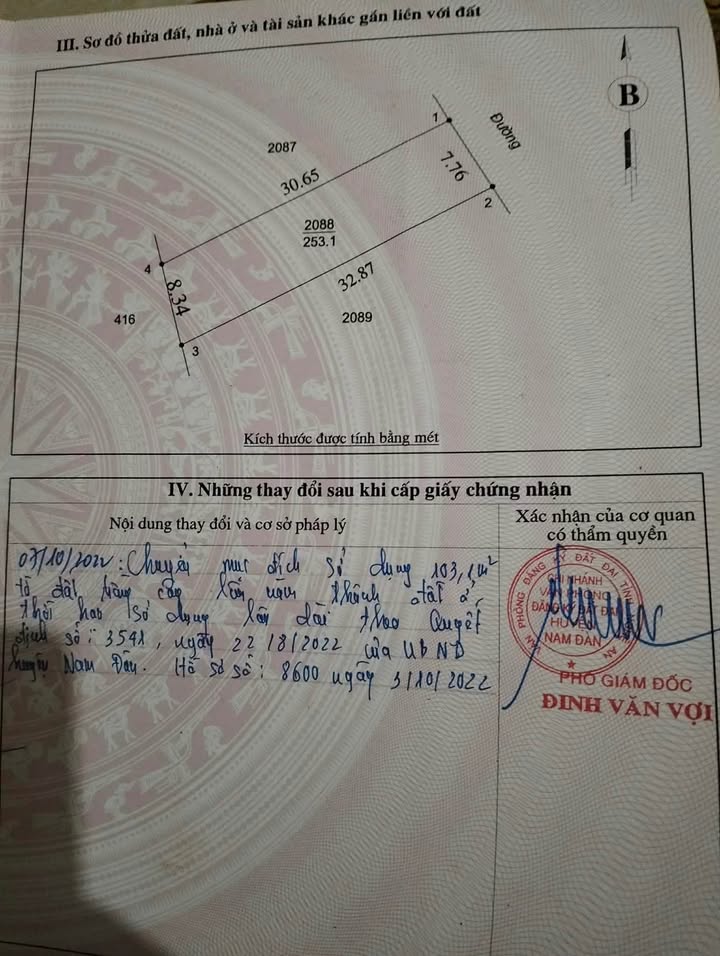 III. Sơ đồ thửa đất, nhà ở và tài sản khác gắn liền với đất
B
1
Đường
2087
30.65
7.76
2
2088
253.1
4
8.34
32.87
416
2089
3
Kích thước được tính bằng mét
IV. Những thay đổi sau khi cấp giấy chứng nhận
Nội dung thay đổi và cơ sở pháp lý
Xác nhận của cơ quan có thẩm quyền
07/10/2022: Chuyển mục đích sử dụng 103,1m²
từ đất trồng cây lâu năm thành đất ở,
thời hạn sử dụng lâu dài theo Quyết
định số: 3541, ngày 22/8/2022 của UBND
huyện Nam Đàn. Hồ sơ số: 8600 ngày 3/10/2022
VĂN PHÒNG ĐĂNG KÝ ĐẤT ĐAI TỈNH AN
CHI NHÁNH
VĂN PHÒNG
ĐĂNG KÝ ĐẤT ĐAI
HUYỆN
NAM ĐÀN
PHÓ GIÁM ĐỐC
ĐINH VĂN VỢI